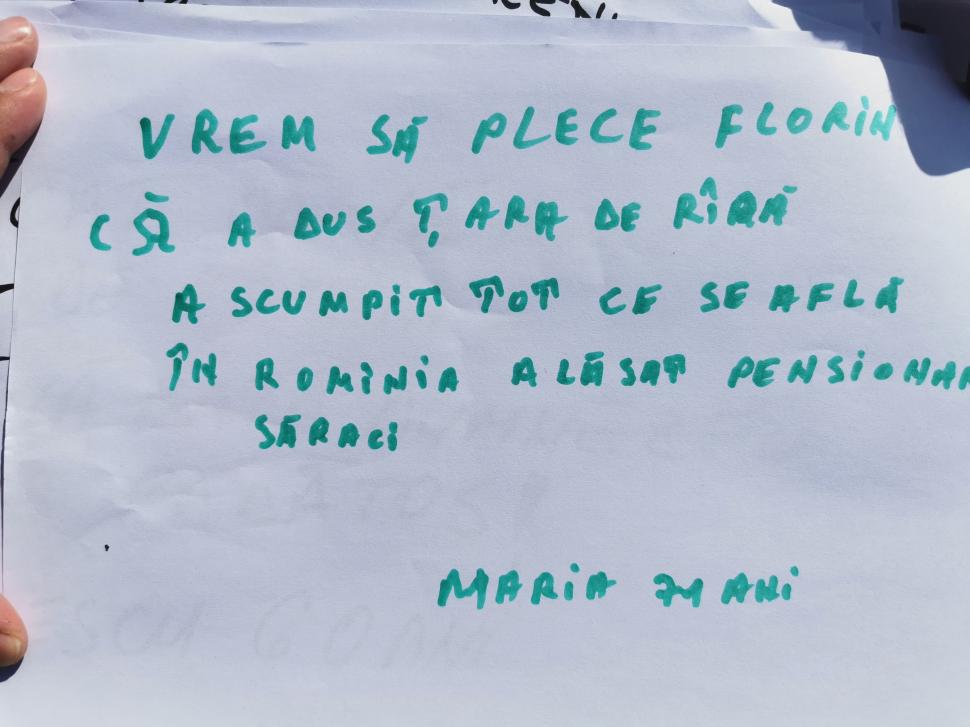 VREM SĂ PLECE FLORIN
CĂ A DUS ȚARA DE RÎRĂ
A SCUMPIT TOT CE SE AFLĂ
ÎN ROMINIA A LĂSAT PENSIONAR
SĂRACI
MARIA 74 ANI